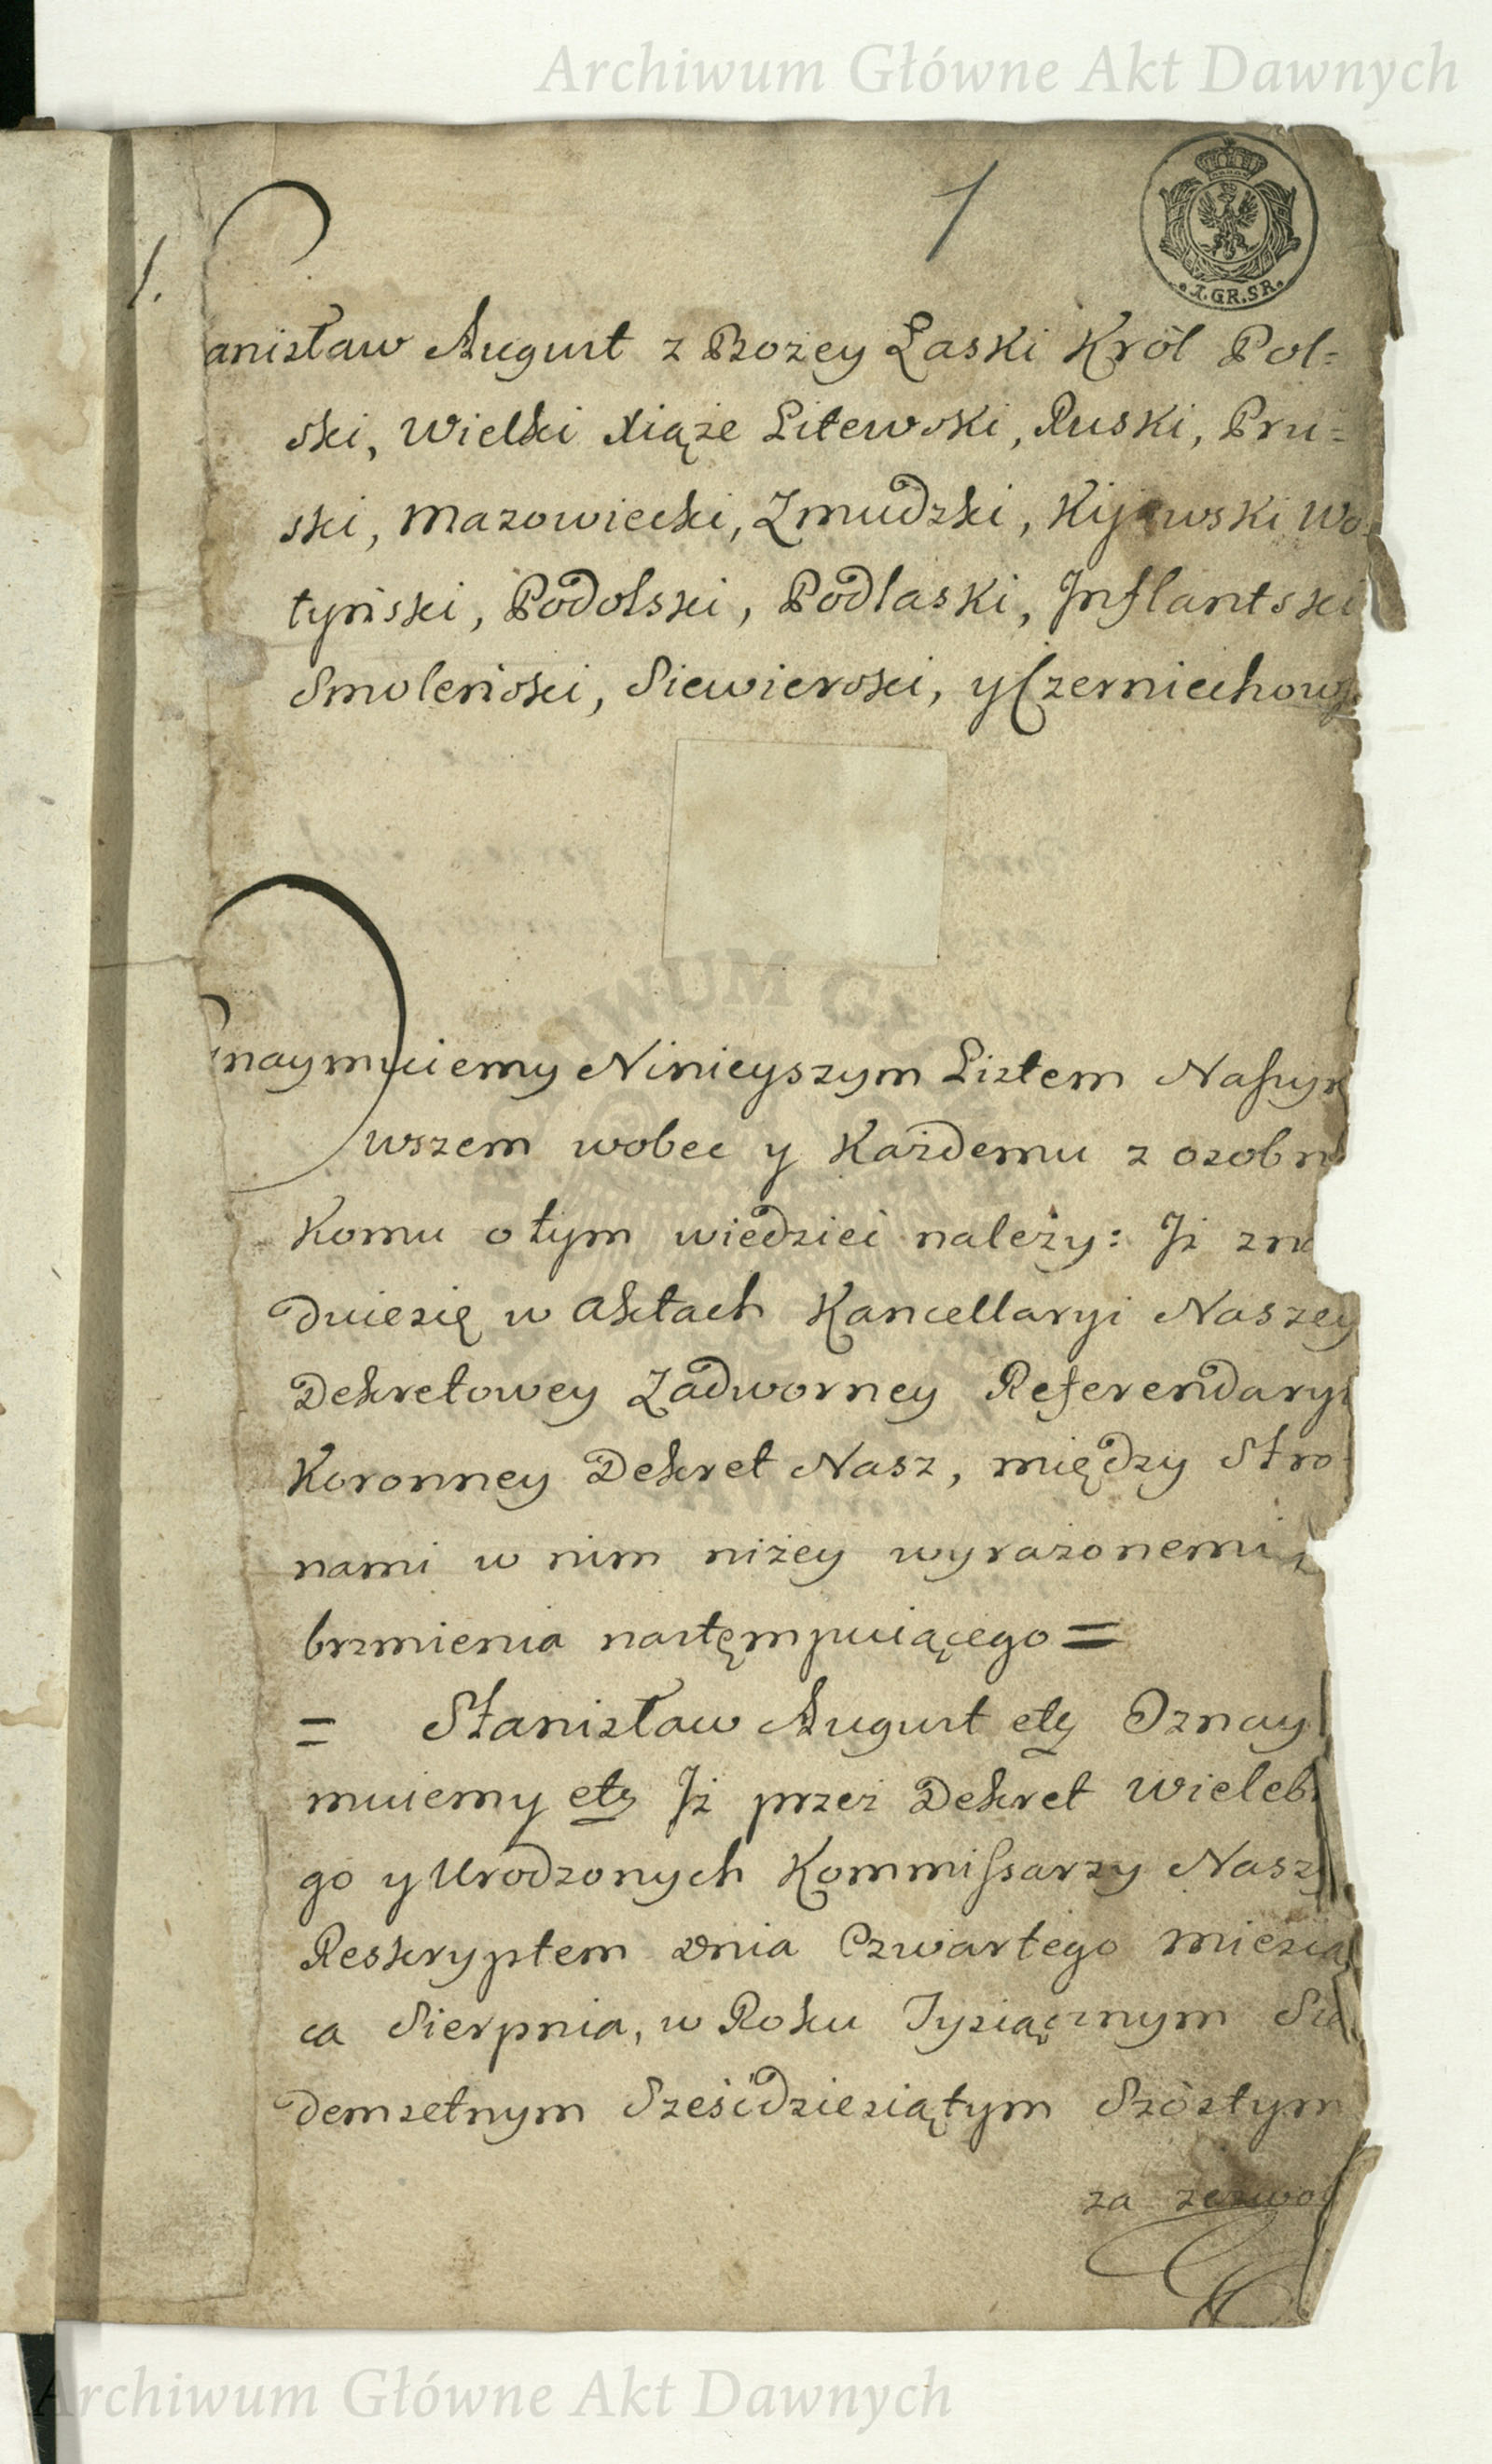 Archiwum Główne Akt Dawnych
1
1.
.I.GR.SR.
anisław August z Bozey Łaski Król Pol=
ski, Wielki Xiąże Litewski, Ruski, Pru=
ski, Mazowiecki, Zmudzki, Kijowski Wo=
łyński, Podolski, Podlaski, Inflantski
Smoleński, Siewierski, y Czerniechow
naymuiemy Ninieyszym Listem Naszym
wszem wobec y Każdemu z osobn
Komu o tym wiedzieć należy: Iż zna
duiesię w Aktach Kancellaryi Naszey
Dekretowey Zadworney Referendaryi
Koronney Dekret Nasz, między Stro
nami w nim niżey wyrażonemi,
brzmienia nastęmpuiącego =
= Stanisław August etc Oznay
muiemy etc Iż przez Dekret Wieleb
go y Urodzonych Kommissarzy Naszy
Reskryptem dnia Czwartego Miesią
ca Sierpnia, w Roku Tysiącznym Sie
demsetnym Sześćdziesiątym Szóstym
za zezwo
Archiwum Główne Akt Dawnych